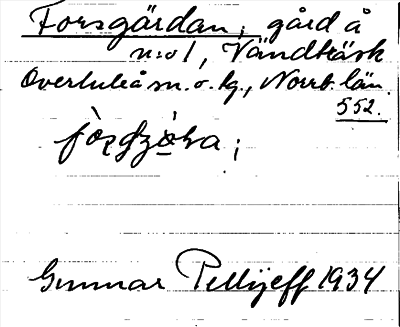 Forsgärdan, gård å
n:o 1, Vändträsk
Överluleå sn. o. kg., Norrb. län.
552.
Gunnar Pellijeff 1934